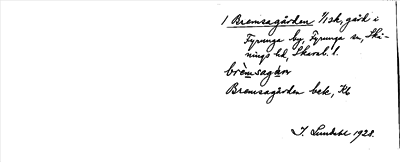 1 Bremsagården 1/1 sk, gård i
Fyrunga by, Fyrunga sn, Skå-
nings hd, Skarab. l.
brèmsagḁɳ
Bremsagården bek, Kb
I. Lundahl 1928.